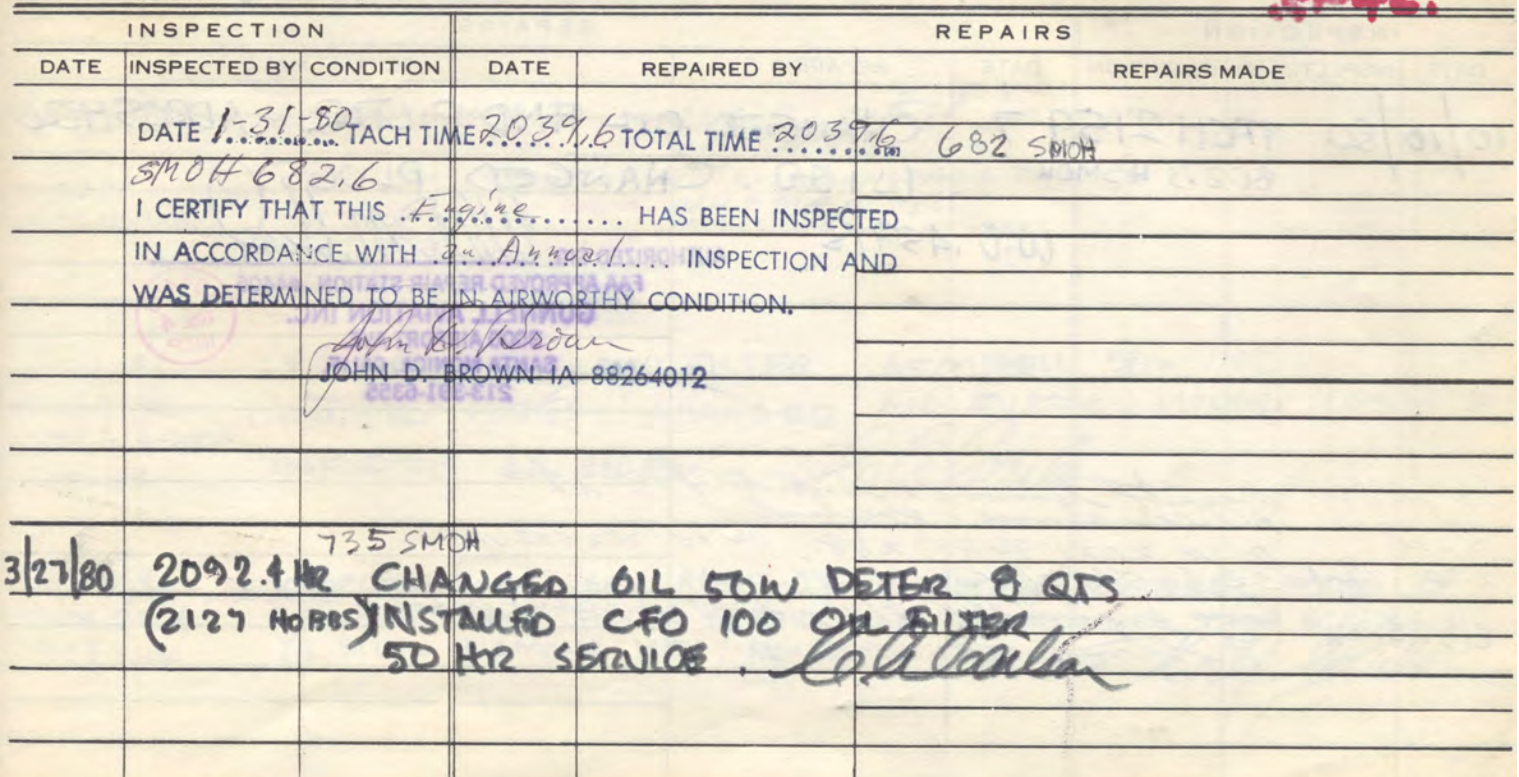 INSPECTION REPAIRS
DATE INSPECTED BY CONDITION DATE REPAIRED BY REPAIRS MADE
DATE 1-31-80 TACH TIME 2039.6 TOTAL TIME 2039.6 682 SMOH
SMOH 682.6
I CERTIFY THAT THIS Engine HAS BEEN INSPECTED
IN ACCORDANCE WITH an Annual INSPECTION AND
WAS DETERMINED TO BE IN AIRWORTHY CONDITION.
John D. Brown
JOHN D. BROWN IA 88264012
735 SMOH
3/27/80 2092.4 HR CHANGED OIL 50W DETER 8 QTS
(2127 HOBBS) INSTALLED CFO 100 OIL FILTER
50 HR SERVICE.